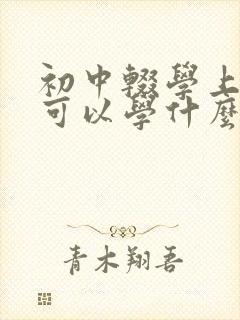 初中輟學上
可以學什麼
青木翔吾